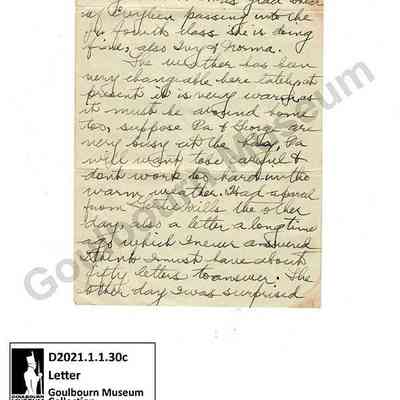 was glad to hear
of Evyleen passing into the
Jr fourth class she is doing
fine, also Ivy & Norma.
The weather has been
very changeable here lately at
present it is very warm as
it must be around home
too, suppose Pa & George are
very busy at the hay, Pa
will want to be careful &
dont work too hard in the
warm weather. Had a parcel
from Mills the other
day, also a letter a long time
ago which I never answered
I think I must have about
fifty letters to answer. The
other day I was surprised
Goulbourn Museum
Goulbourn Museum
D2021.1.1.30c
Letter
Goulbourn Museum
Collection
GOULBOURN
MUSEUM